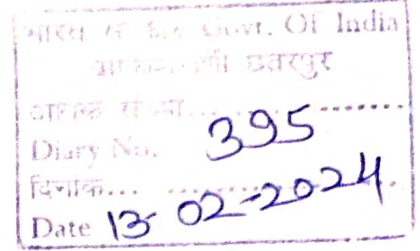 भारत सरकार Govt. Of India
छतरपुर
Diary No. 395
दिनांक...
Date 13-02-2024